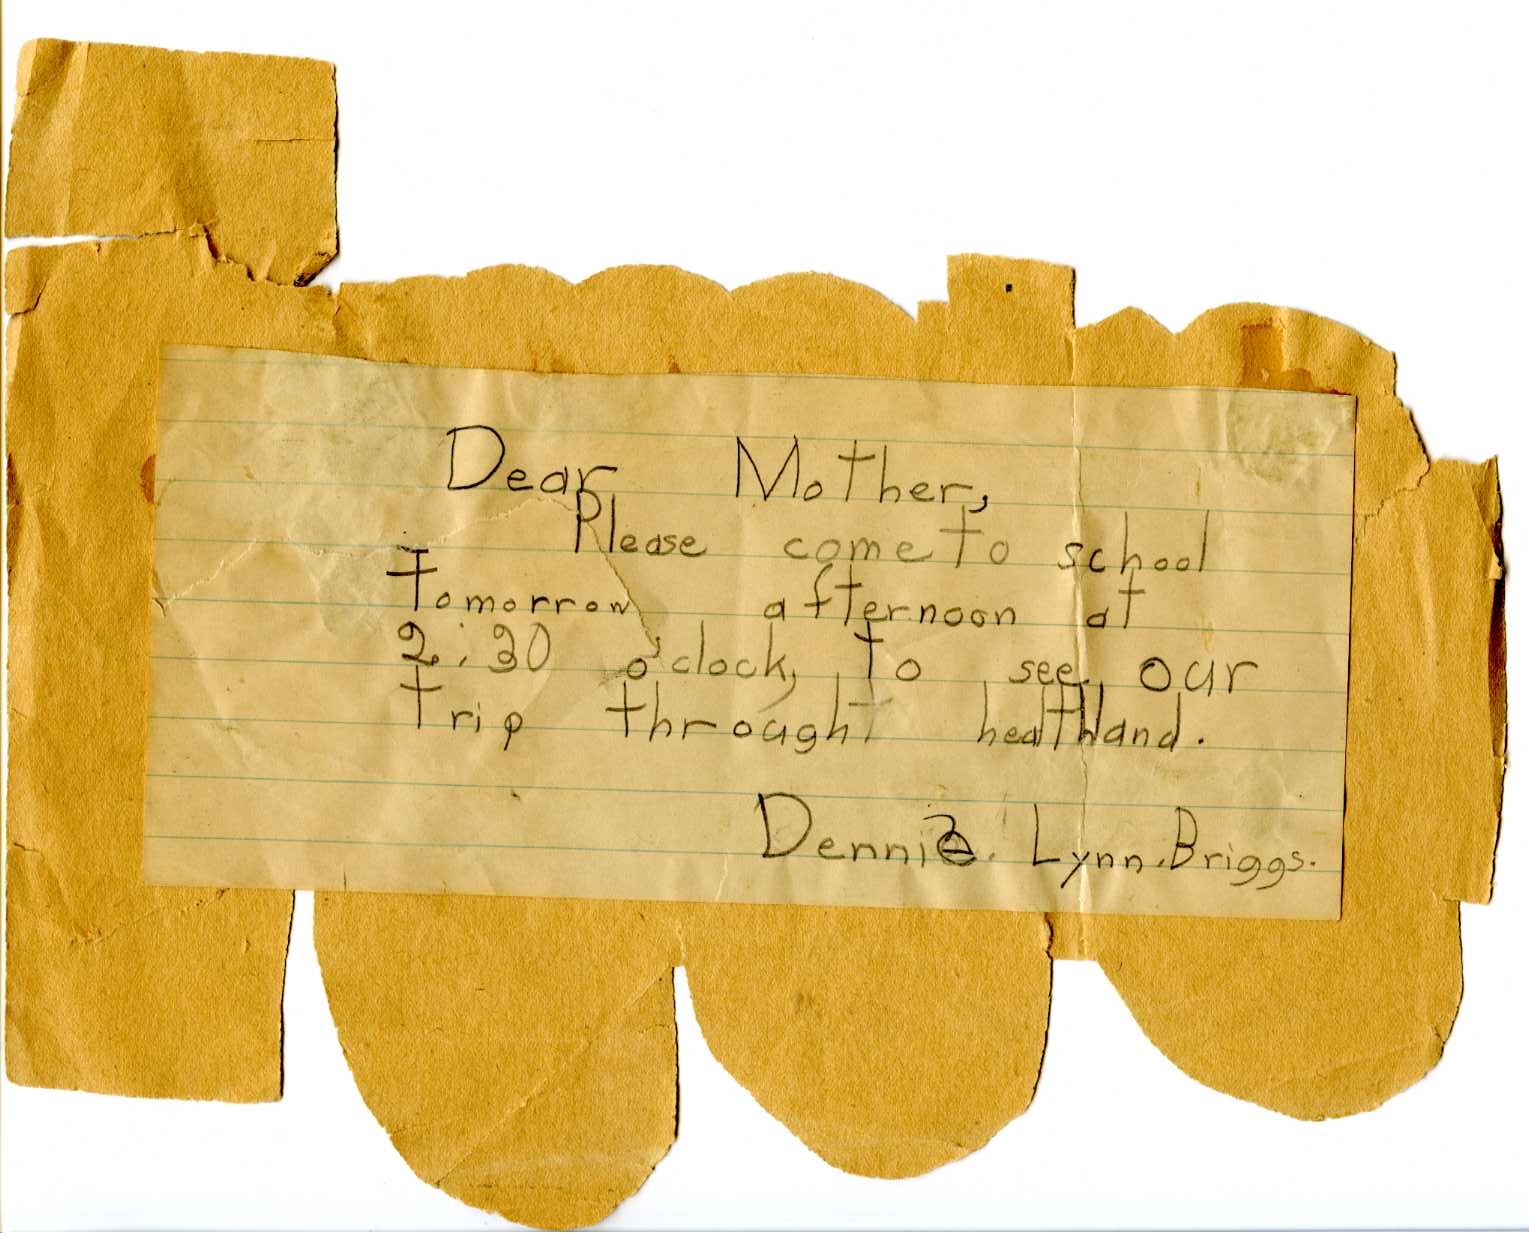 Dear Mother,
Please come to school
Tomorrow afternoon at
2:30 o'clock, to see our
Trip throught healthland.
Dennie. Lynn. Briggs.